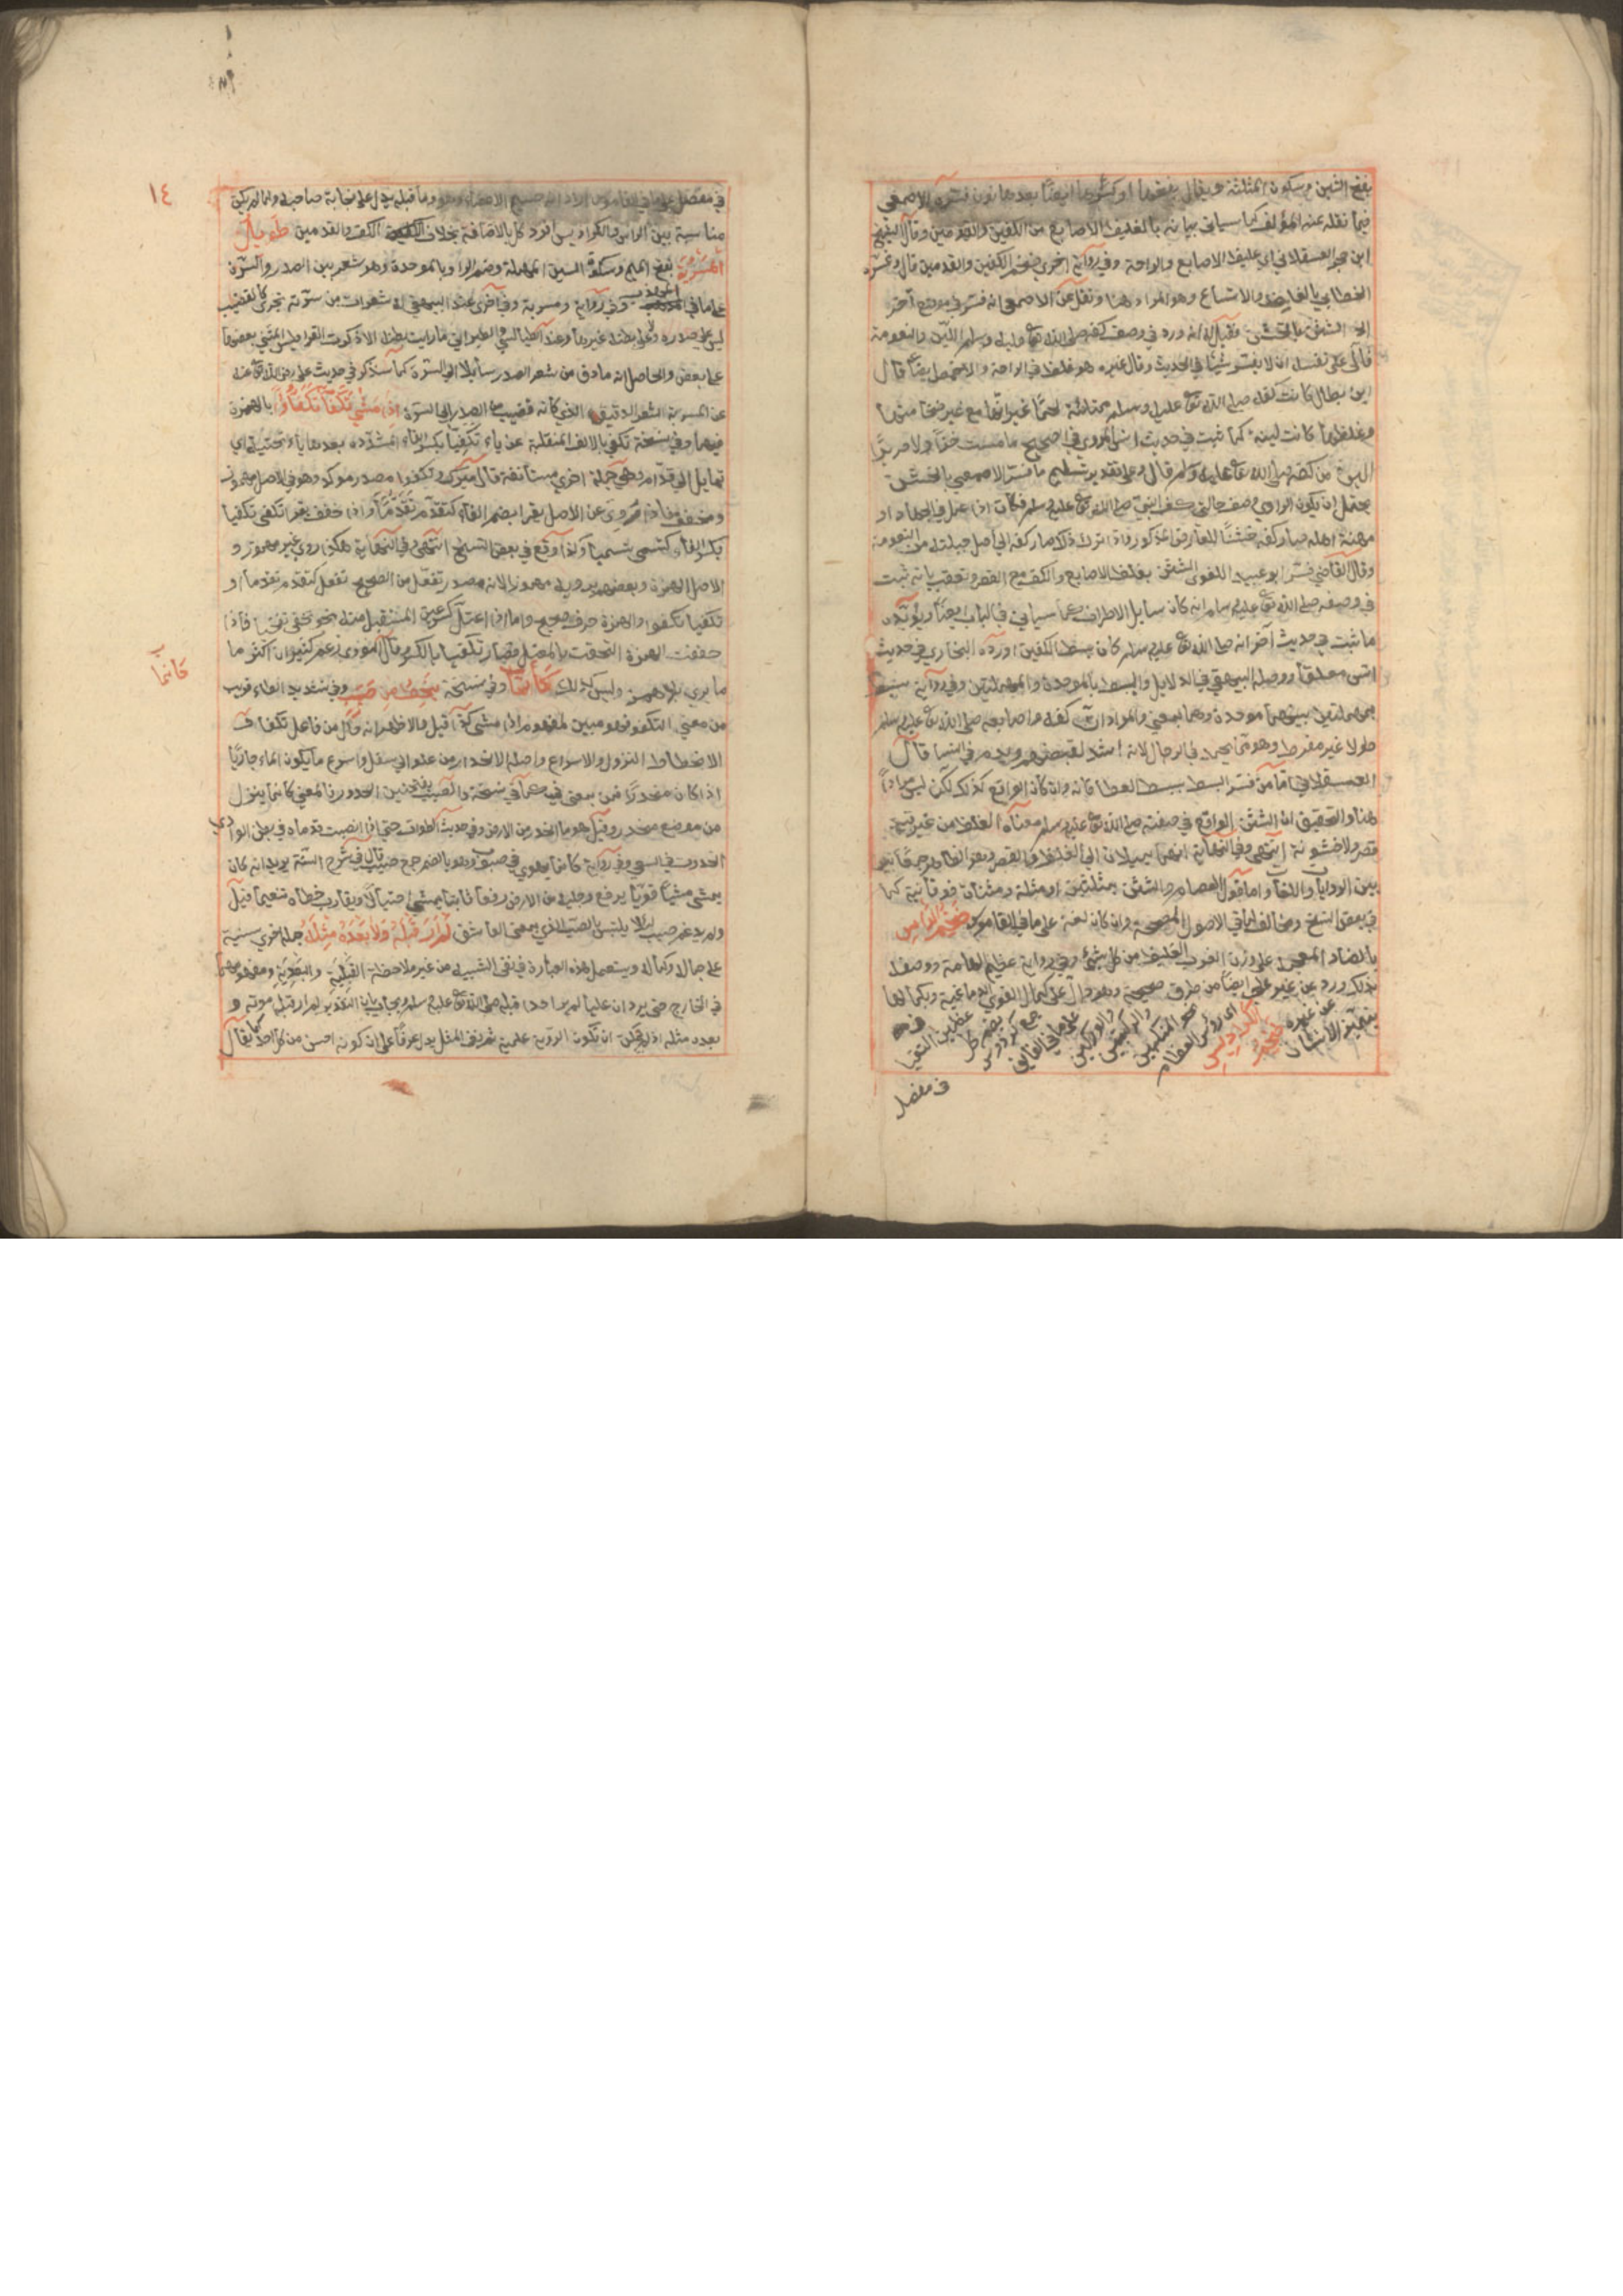 بفتح الشين وسكون المثلثة ويقال بفتحها او كسرها ايضًا بعدها نون فسّره الاصمعي
فيما نقله عنه المؤلف كما سياتي بيانه بالغليظ الاصابع من الكفين والقدمين وقال الشيخ
ابن حجر العسقلاني اي غليظ الاصابع والراحة وفي رواية اخرى ضخم الكفين والقدمين قال وفسّره
الخطابي بالغلظ والاتساع وهو المراد هنا ونقل عن الاصمعي انه فسّر في موضع آخر
الشثن بالخشن فقيل له انه ورد في وصف كفه صلى الله تعالى عليه وسلم اللين والنعومة
فآلى على نفسه ان لا يفسّر شيئًا في الحديث وقال غيره هو غلظ في الراحة والاخمص ايضًا قال
ابن بطال كانت كفه صلى الله تعالى عليه وسلم ممتلئة لحمًا غير انها مع ضخامتها
وغلظها كانت لينة كما ثبت في حديث انس المروي في الصحيح ما مسست خزًّا ولا حريرًا
الين من كفه صلى الله تعالى عليه وسلم قال وعلى تقدير تسليم ما فسّر الاصمعي بالخشن
يحتمل ان يكون الراوي وصف حالتي كف النبي صلى الله تعالى عليه وسلم فكان اذا عمل في الجهاد او
مهنة اهله صار كفه خشنًا للعارض المذكور واذا ترك ذلك صار كفه الى اصل جبلته من النعومة
وقال القاضي فسّر ابو عبيد اللغوي الشثن بغلظ الاصابع والكف مع القصر وتعقب بانه ثبت
في وصفه صلى الله تعالى عليه وسلم انه كان سايل الاطراف كما سياتي في الباب ايضًا ويؤيده
ما ثبت في حديث آخر انه صلى الله تعالى عليه وسلم كان بسط الكفين اورده البخاري في حديث
انس معلقا ووصله البيهقي في الدلايل والبسط بالموحدة والمهملتين وفي رواية سبط
بمهملتين بينهما موحدة وهما بمعنى والمراد ان في كفه واصابعه صلى الله تعالى عليه وسلم
طولا غير مفرط وهو مما يحمد في الرجال لانه اشد لقبضهم ويذم في النسا قال
العسقلاني اما من فسّر البسط ببسط العطا فانه وان كان الواقع كذلك لكن ليس مرادًا
هنا والتحقيق ان الشثن الواقع في صفته صلى الله تعالى عليه وسلم معناه الغلظ من غير قيد
قصر ولا خشونة انتهى وفي النهاية انهما يميلان الى الغلظ والقصر وهو الظاهر جمعًا
بين الروايات واللغات واما قول العصام والشثن بمثلثتين او مثلثة ومثناة فوقانية كما
في بعض النسخ فمخالف لما في الاصول المصححة وان كان لغة على ما في القاموس ضخم الراس
بالضاد المعجمة على وزن الضرب الغليظ من كل شيء وفي رواية عظيم الهامة ووصفه
بذلك ورد عن غير علي ايضًا من طرق صحيحة وهو دال على كمال القوى الدماغية وبكمالها
يتميز الانسان عن غيره ضخم الكراديس اي رؤس العظام نحو المنكبين والركبتين والوركين على ما في الفايق جمع كردوس بضم كل عظمين التقيا
في مفصل
١٤
في مفصل على ما في القاموس اراد انه جسيم الاعضاء وهو وما قبله يدل على نجابة صاحبه ولما لم يكن
مناسبة بين الراس والكراديس افرد كل بالاضافة بخلاف الكف والقدمين طويل
المسربة بفتح الميم وسكون السين المهملة وضم الراء وبالموحدة وهو شعر بين الصدر والسرة
على ما في المهذب وفي رواية ذو مسربة وفي اخرى عند البيهقي له شعرات من سرته تجري كالقضيب
ليس على صدره ولا على بطنه غيرها وعند الطيالسي والطبراني ما رايت بطنه الا ذكرت القراطيس المثنى بعضها
على بعض والحاصل انه ما دق من شعر الصدر سايلا الى السرة كما سنذكر في حديث علي رضي الله تعالى عنه
عن المسربة الشعر الدقيق الذي كانه قضيب من الصدر الى السرة اذا مشى تكفّأ تكفّؤًا بالهمزة
فيهما وفي نسخة تكفى بالالف المنقلبة عن ياء تكفّيًا بكسر الفاء المشدده بعدها ياء تحتية اي
تمايل الى قدّام وهي جملة اخرى مستأنفة قال ميرك وتكفؤا مصدر موكد وهو في الاصل مهموز
ومخفف فاذا روي عن الاصل يقرا بضم الفاء كتقدّم تقدّمًا واذا خفف يقرا تكفى تكفيا
بكسر الفاء كتسمى تسميا وكذا وقع في بعض النسخ انتهى وفي النهاية هكذا روي غير مهموز و
الاصل الهمزة وبعضهم يرويه مهموزا لانه مصدر تفعّل من الصحيح تفعل كتقدم تقدما و
تكفيا تكفوا والهمزة حرف صحيح واما اذا اعتل كسر عين المستقبل منه نحو تخفى تخفيا فاذا
خففت الهمزة التحقت بالمعتل فصار تكفيا بالكسر وقال النووي زعم كثيرون ان اكثر ما
كانما
ما يروى بلا همز وليس كذلك كأنما وفي نسخة ينحط من صبب وفي تشديد الطاء قريب
من معنى التكفو فهو مبين لمفهوم اذا مشى تكفّأ قيل والاظهر انه حال من فاعل تكفأ ف
الانحطاط النزول والاسراع واصله الانحدار من علو الى سفل واسرع ما يكون الماء جاريًا
اذا كان منحدرًا فمن بمعنى في كما في نسخة والصبب بفتحتين الحدور فالمعنى كانما ينزل
من موضع منحدر وقيل هو ما انحدر من الارض وفي حديث الطواف حتى اذا انصبت قدماه في بطن الوادي
انحدرت في السعي وفي رواية كانما يهوي في صبوب وهو بالضم جمع صبب قال في شرح السنة يريد انه كان
يمشي مشيًا قويًا يرفع رجليه من الارض رفعا ثابتا لا كمن يمشي اختيالًا ويقارب خطاه تنعيما قيل
ولم يدغم صبب لئلا يلتبس بالصب الذي بمعنى العاشق لم ار قبله ولا بعده مثله جملة اخرى سنية
على جماله وكماله ويستعمل هذه العبارة في نفي الشبيه من غير ملاحظة القبلية والبعدية ومفهومهما
في الخارج حتى يرد ان عليا لم ير احدا قبله صلى الله تعالى عليه وسلم ويجاب بان التقدير لم ار قبل موته و
بعده مثله اذ يمكن ان تكون الروية علمية ثم نفي المثل يدل عرفًا على ان كونه احسن من كل احد كما يقال